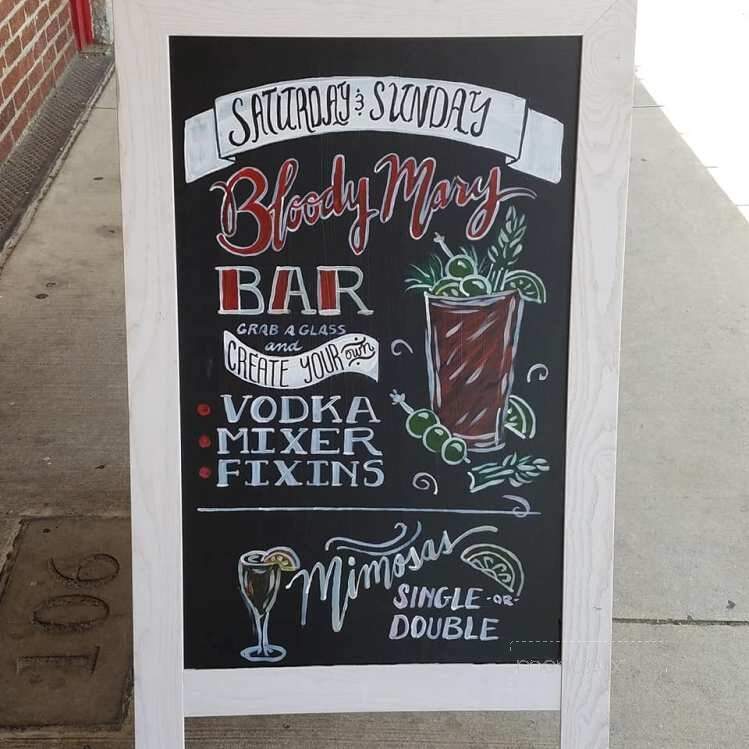 SATURDAY & SUNDAY
Bloody Mary
BAR
GRAB A GLASS
and
CREATE YOUR own
VODKA
MIXER
FIXINS
Mimosas
SINGLE -OR-
DOUBLE
106